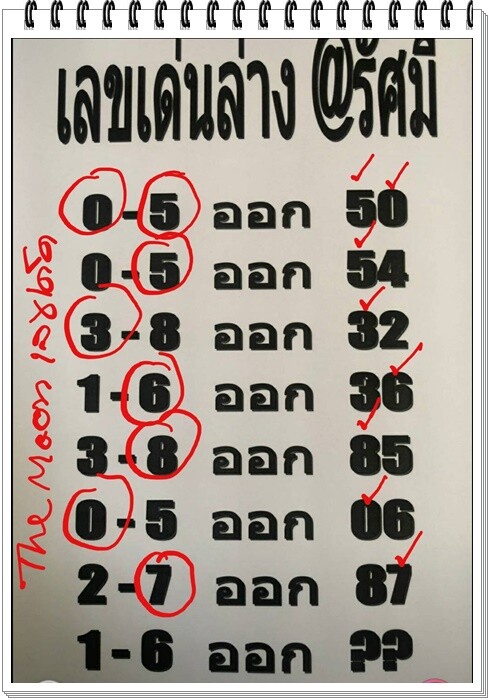 เลขเด่นล่าง @รัศมี
0-5 ออก 50
0-5 ออก 54
3-8 ออก 32
1-6 ออก 36
3-8 ออก 85
0-5 ออก 06
2-7 ออก 87
1-6 ออก ??
The Moon เลขเด็ด